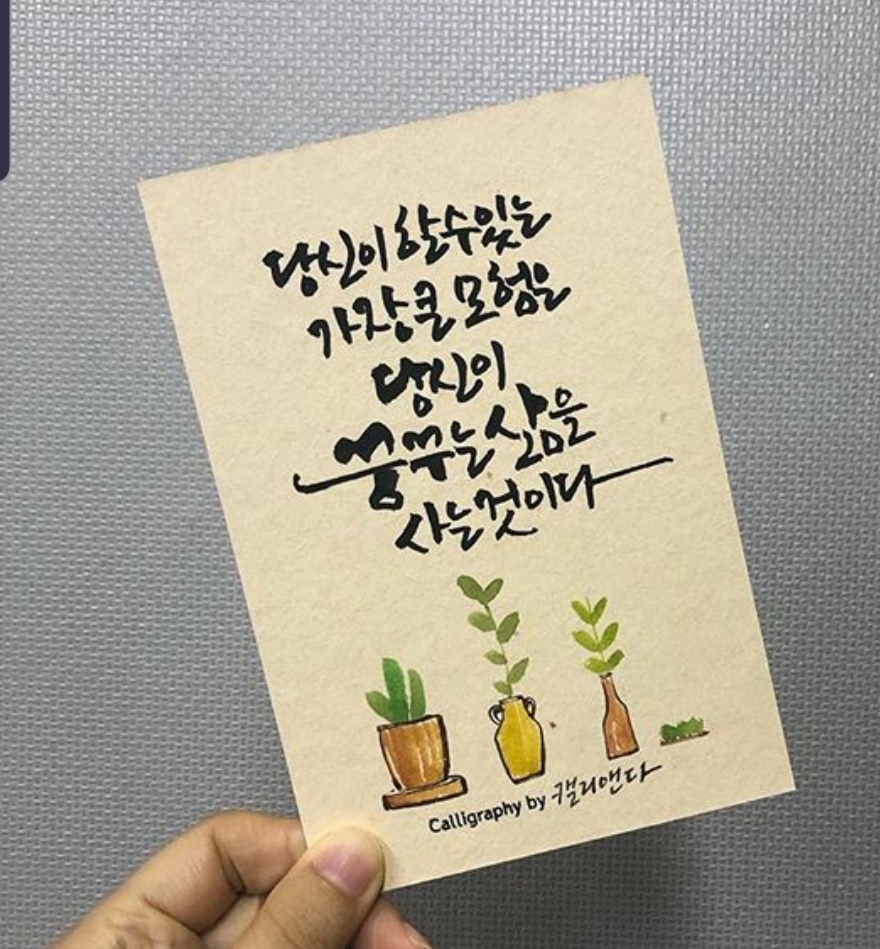 당신이 할수있는
가장 큰 모험은
당신이
꿈꾸는 삶을
사는것이다
Calligraphy by 캘리앤다